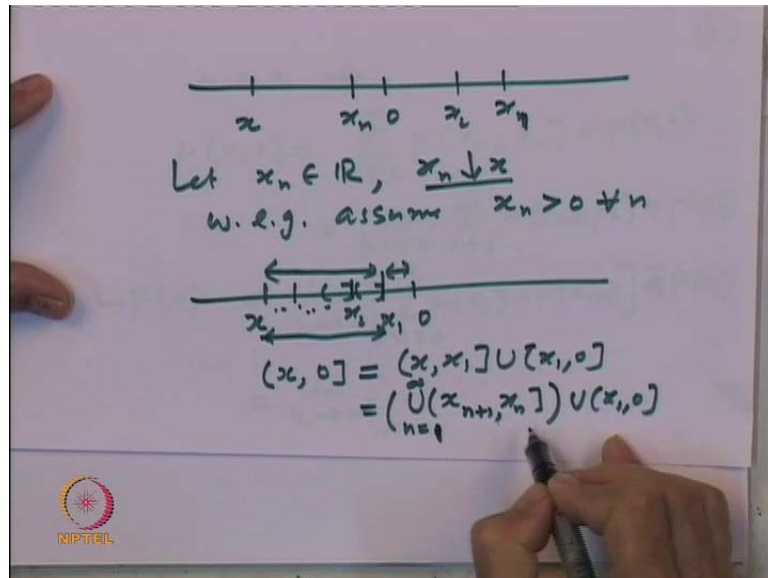 x xₙ 0 x₂ xₙ
Let xₙ ∈ ℝ, xₙ ↓ x
w.l.g. assume xₙ > 0 ∀ n
x ... ... x₂ x₁ 0
(x, 0] = (x, x₁] ∪ [x₁, 0]
= (⋃_{n=1}^{∞} (xₙ₊₁, xₙ]) ∪ (x₁, 0]
NPTEL